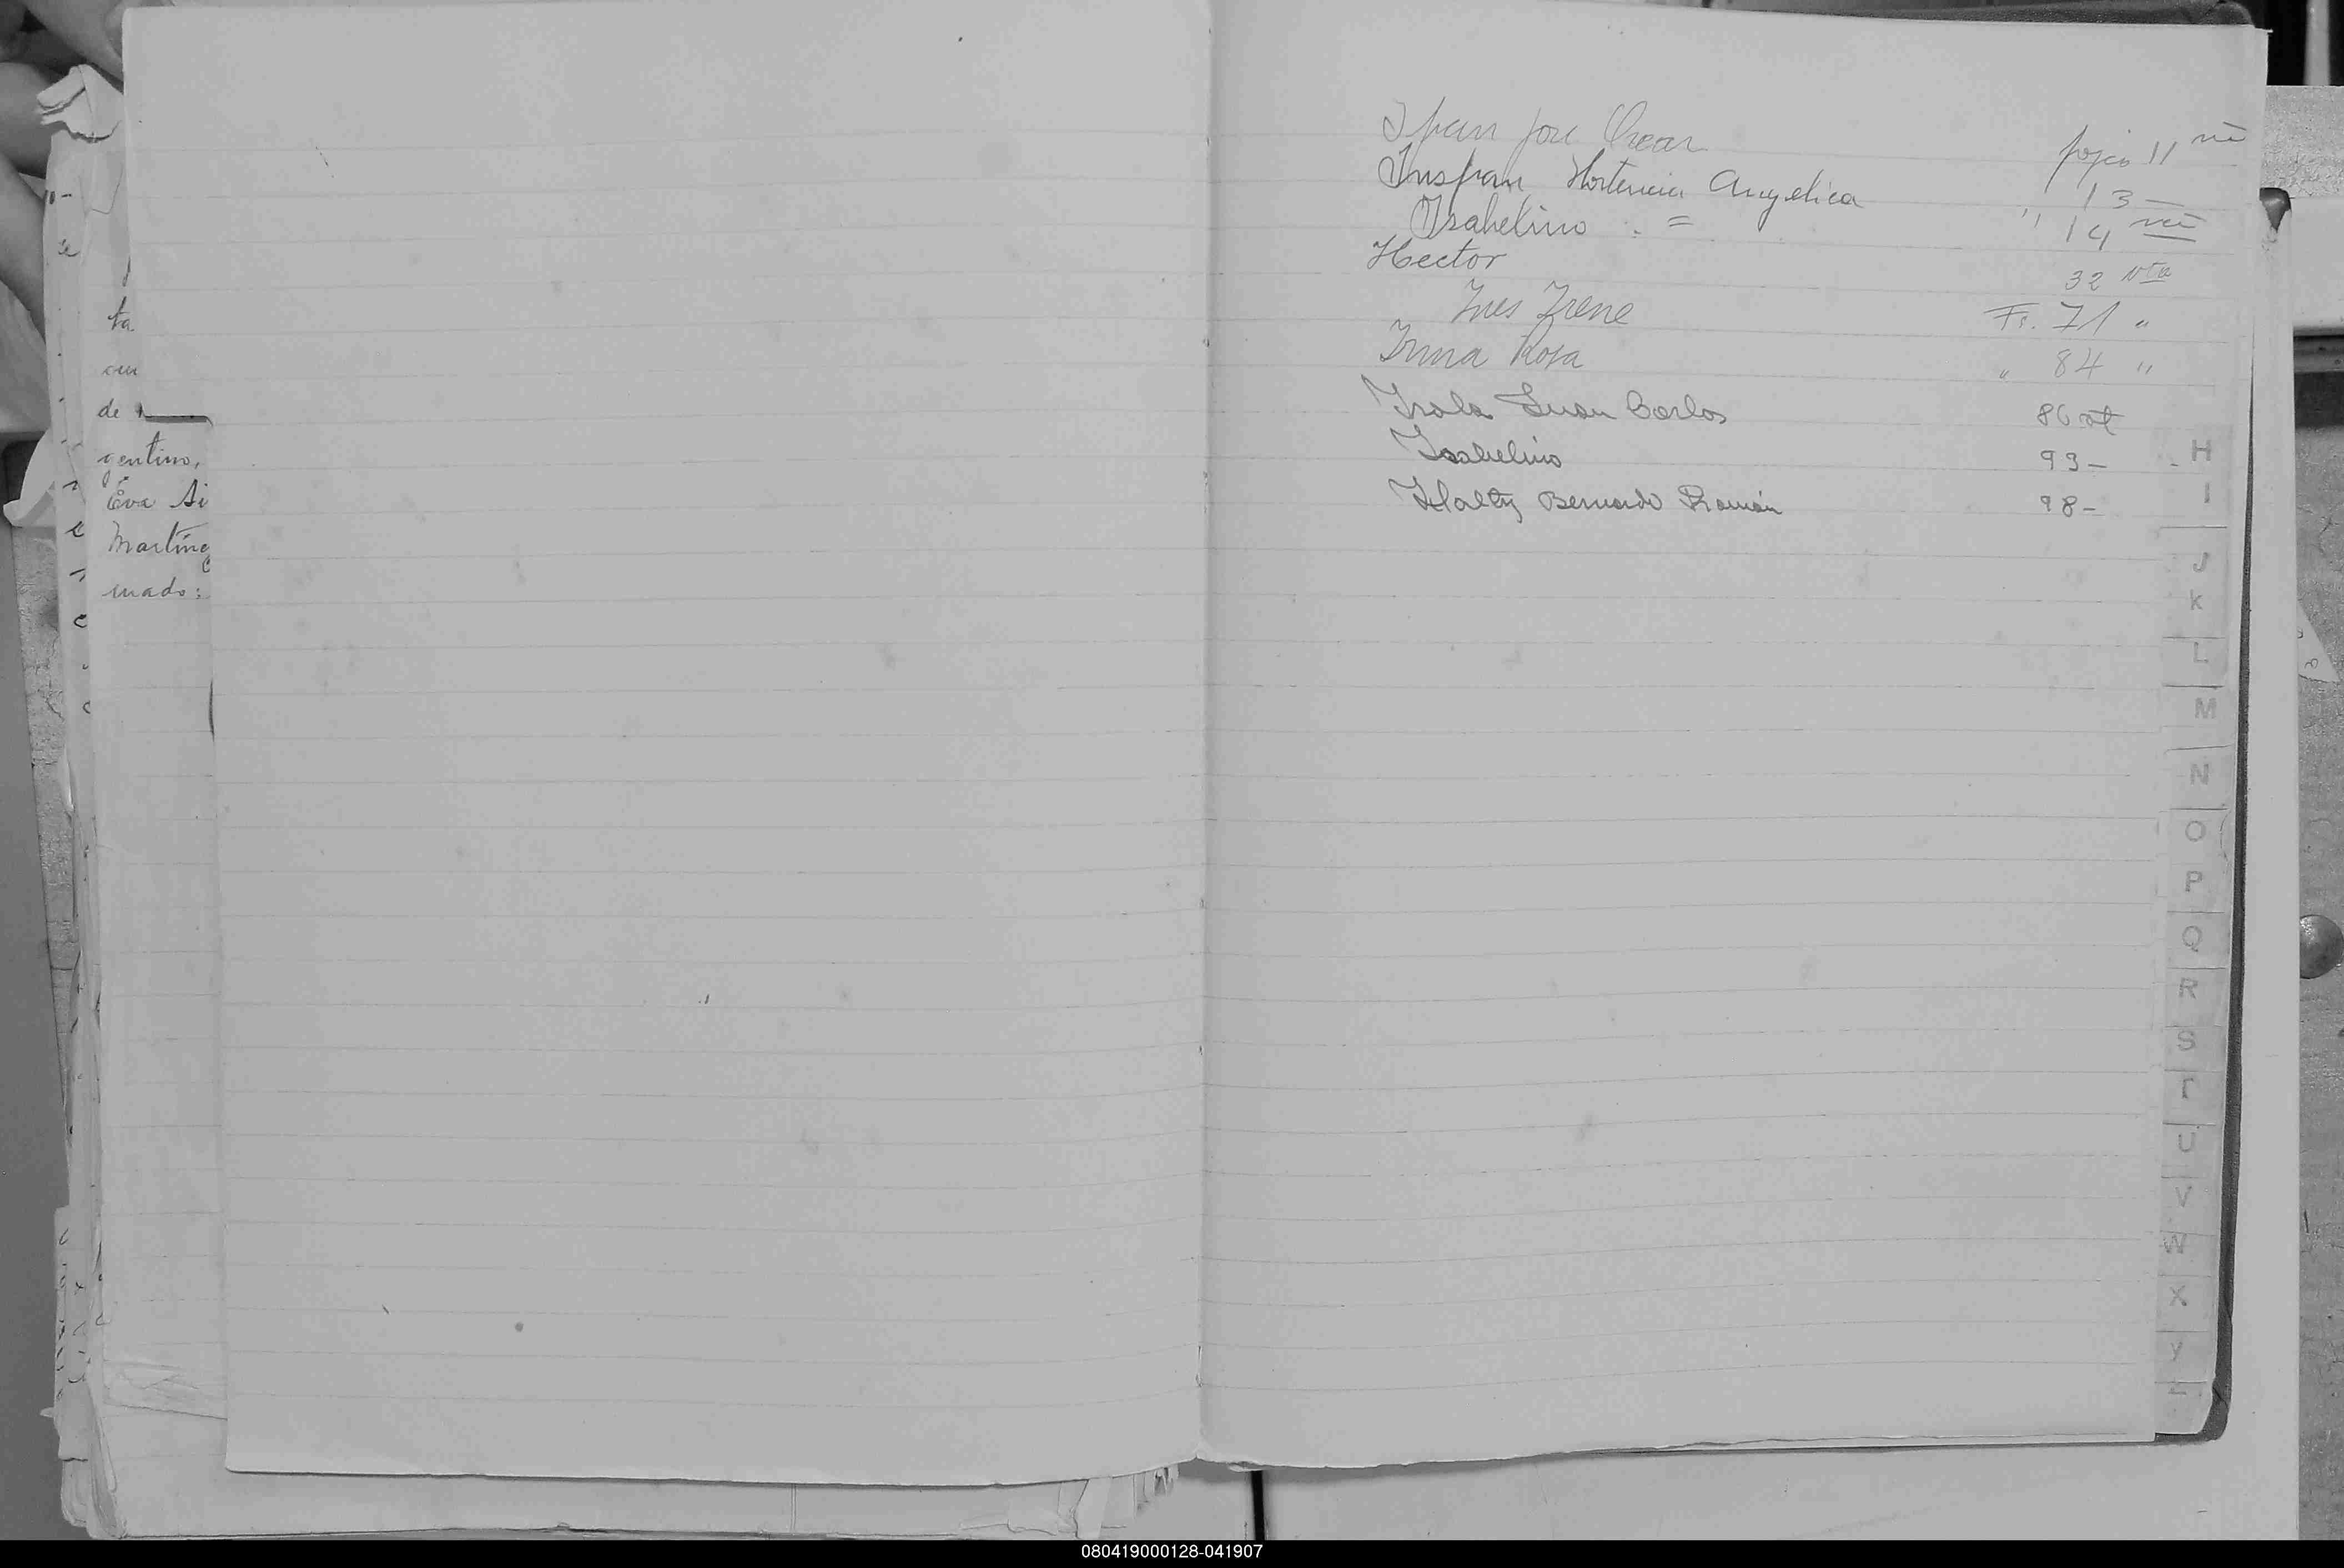 ta
de
gentino,
Eva
mado:
Jose Oscar folio 11
Insfran Hortencia Angelica 13 —
Isabelino . = " 14
Hector 32 vta
Ines Irene Fo. 71 "
Irma Rosa " 84 "
Isala Juan Carlos 86 vt
Isabelino 93 -
Bernardo Ramón 98 -
H
I
J
K
L
M
N
O
P
Q
R
S
T
U
V
W
X
Y
080419000128-041907